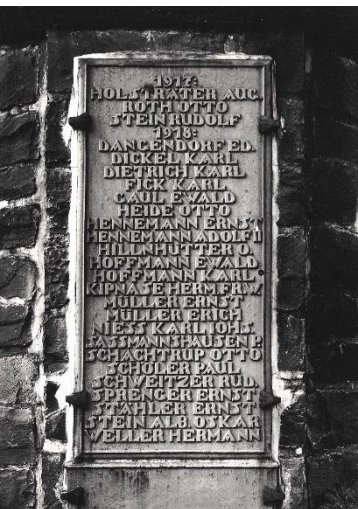 1917:
HOLSTRÄTER AUG.
ROTH OTTO
STEIN RUDOLF
1918:
DANGENDORF ED.
DICKEL KARL
DIETRICH KARL
FICK KARL
GAUL EWALD
HEIDE OTTO
HENNEMANN ERNST
HENNEMANN ADOLF II
HILLNHÜTTER O.
HOFFMANN EWALD
HOFFMANN KARL
KIPNASE HERM.FR.W.
MÜLLER ERNST
MÜLLER ERICH
NIESS KARL JOH.S.
SASSMANNSHAUSEN P.
SCHACHTRUP OTTO
SCHÖLER PAUL
SCHWEITZER RUD.
SPRENGER ERNST
STÄHLER ERNST
STEIN ALB. OSKAR
WELLER HERMANN